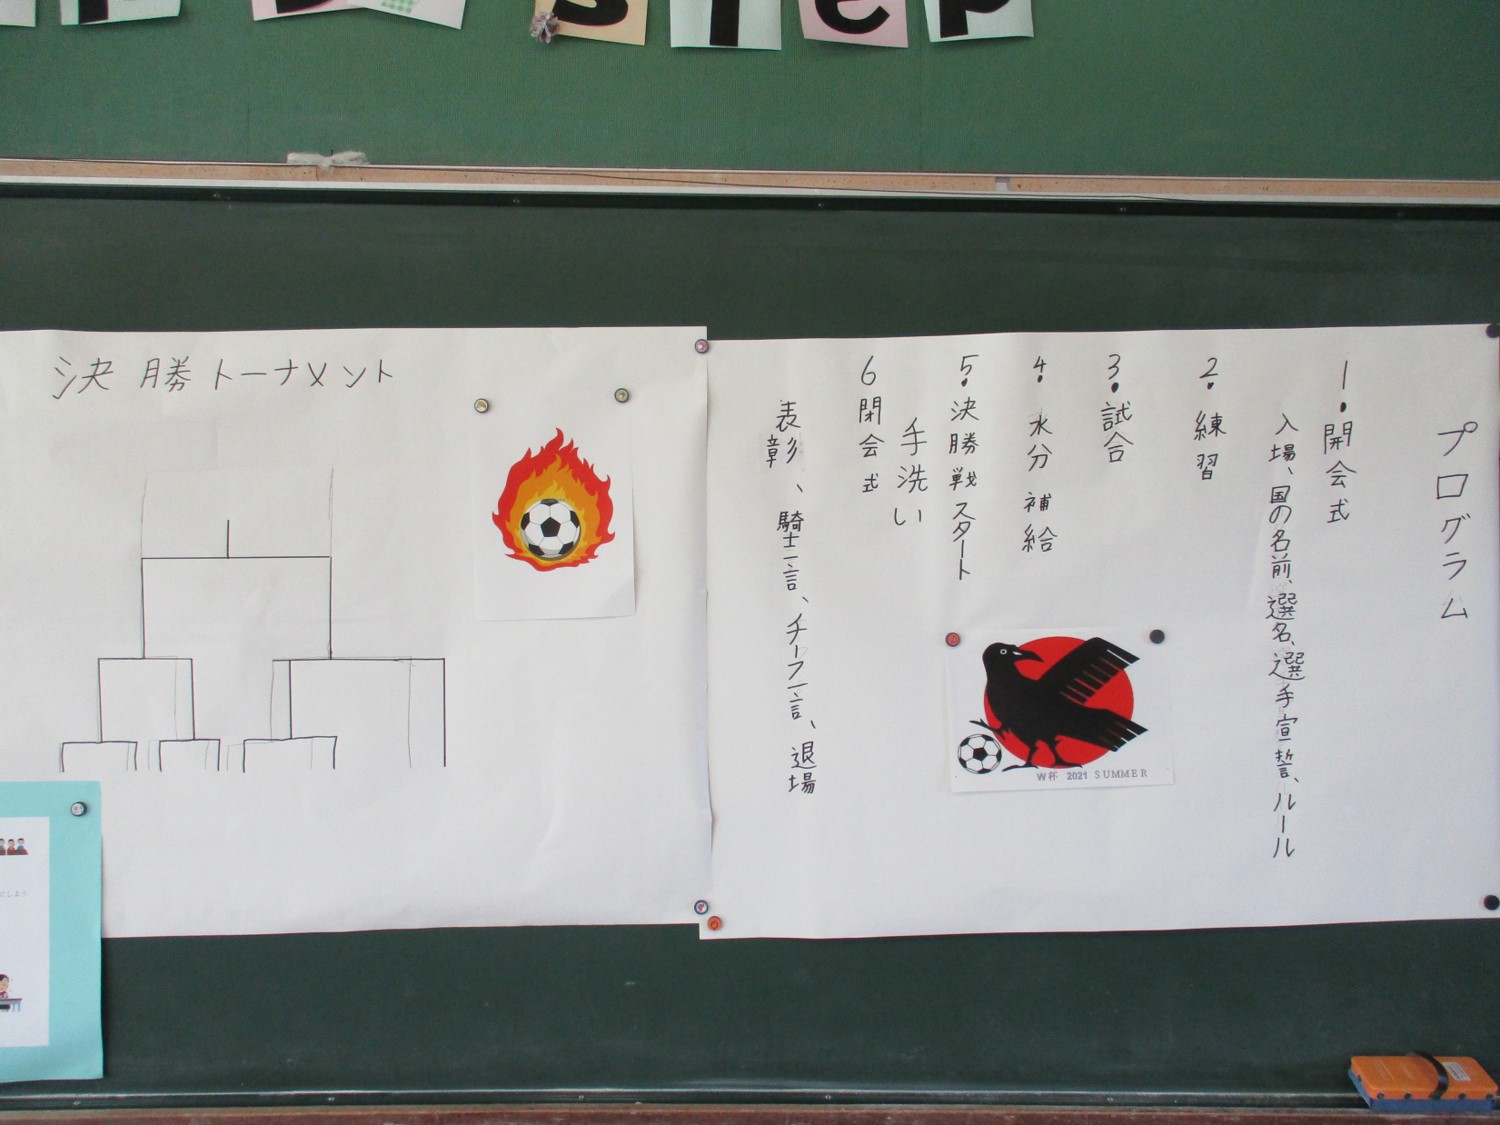 step
決勝トーナメント
プログラム
1.開会式
入場、国の名前、選名、選手宣誓、ルール
2.練習
3.試合
4.水分補給
5.決勝戦スタート
手洗い
6閉会式
表彰、騎士一言、チーフ一言、退場
W杯 2021 SUMMER
にしよう